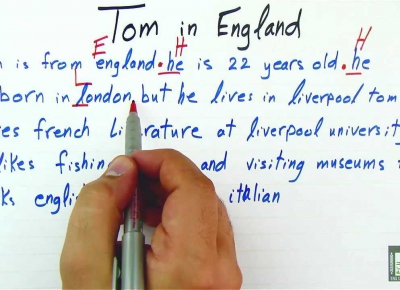 Tom in England
is from england. he is 22 years old. he
born in london, but he lives in liverpool tom
french literature at liverpool university
likes fishing and visiting museums
italian
E
H
H
L